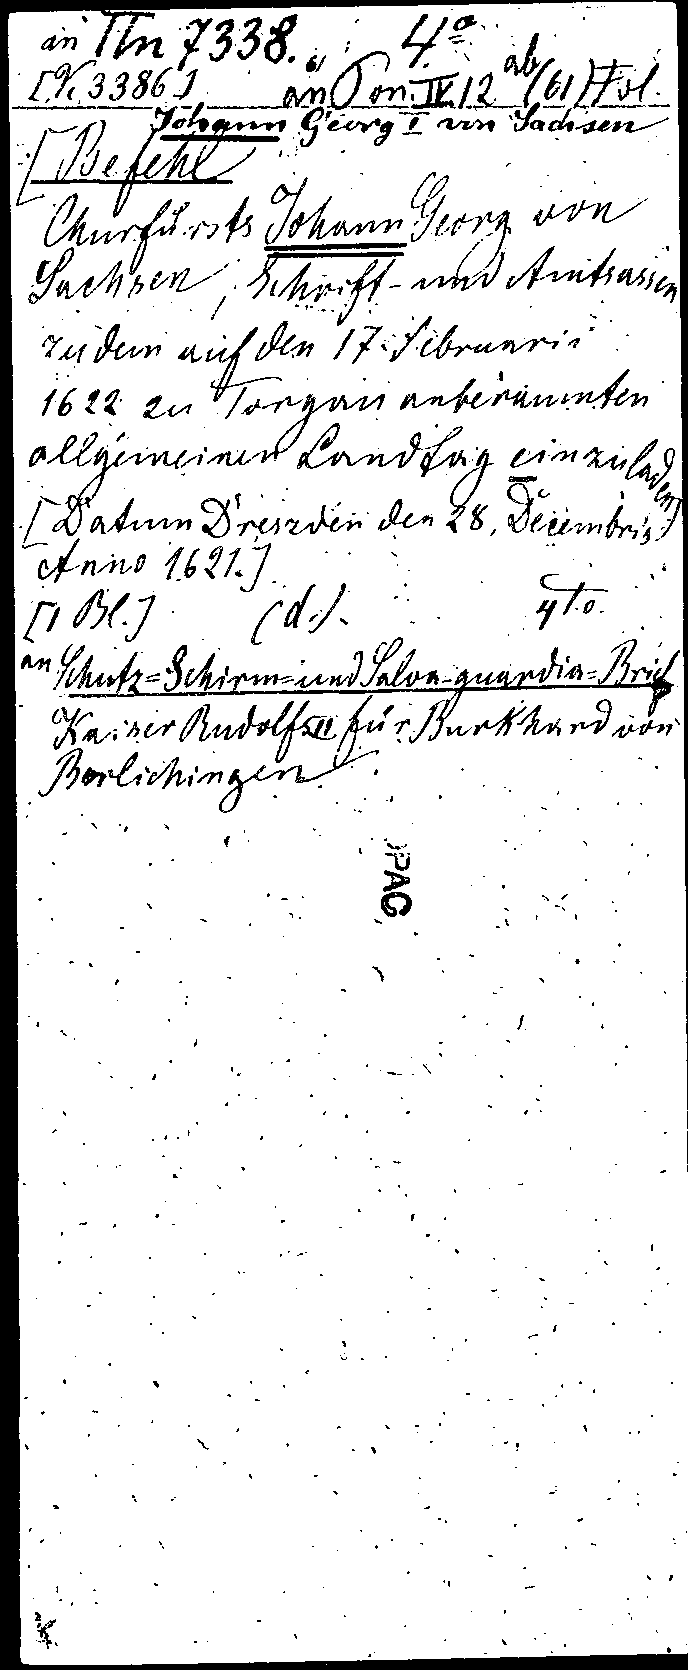 an Tn 7338. 4.º
[K. 3386] an Pon. IV. 12 ab (61) Fol.
Johann Georg I von Sachsen
[Befehl
Churfürsts Johann Georg von
Sachsen, Schrifft- und Amtsassen
zu dem auf den 17. Februarii
1622 zu Torgau anberaumten
allgemeinen Landtag einzuladen]
[Datum Dreszden den 28. Decembris
Anno 1621.]
[1 Bl.] (d.). 4to.
an Schutz=Schirm=und Salva-guardia=Brief
Kaiser Rudolfs II für Burkhard von
Berlichingen
OPAC